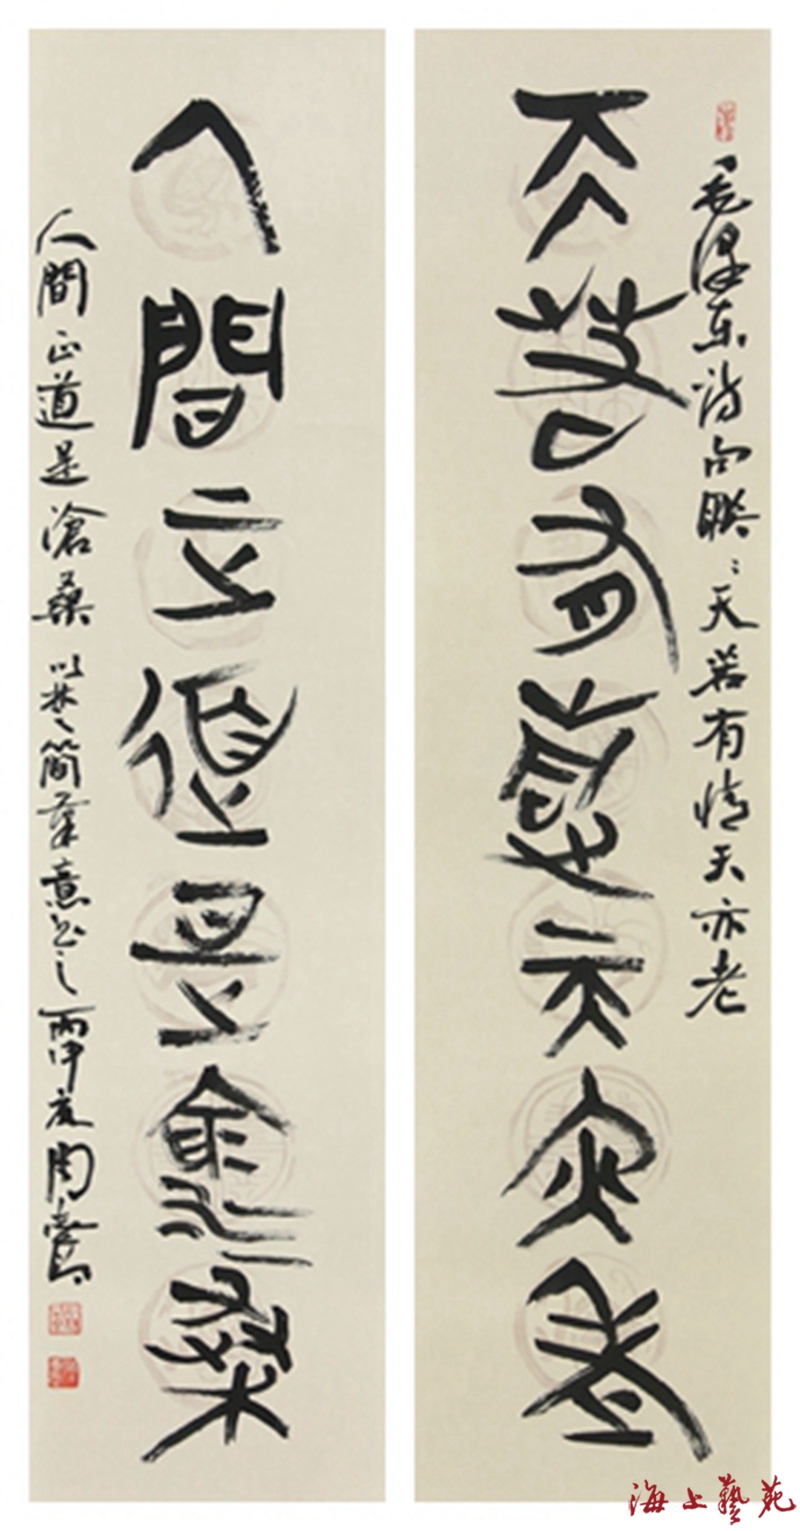 毛泽东诗句联：天若有情天亦老
天若有情天亦老
人間正道是滄桑
人間正道是滄桑 以楚簡筆意書之 丙申夏 周
海上藝苑